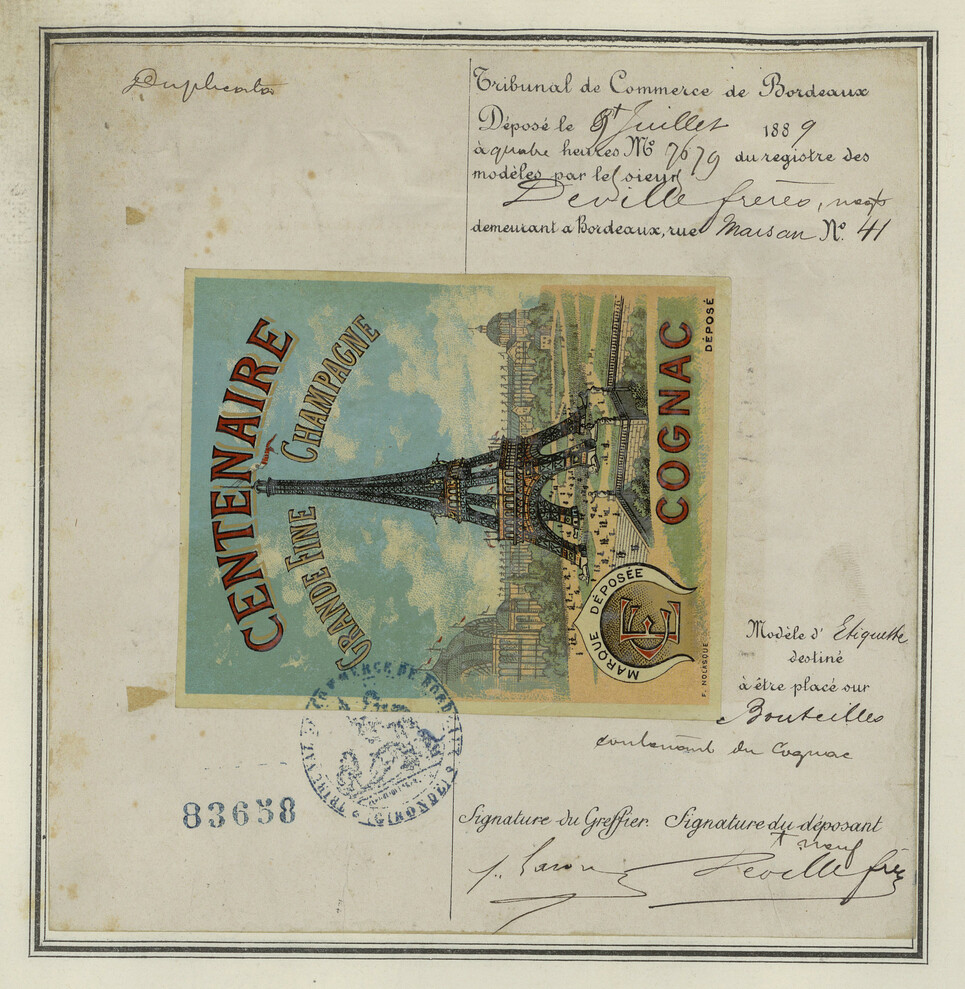 Duplicata
Tribunal de Commerce de Bordeaux
Déposé le Juillet 1889
à quatre heures No 7679 du registre des
modèles par le sieur
Deville frères,
demeurant à Bordeaux, rue No. 41
CENTENAIRE
GRANDE FINE CHAMPAGNE
COGNAC
DÉPOSÉ
MARQUE DÉPOSÉE
F. NOLASQUE
Modèle d' Etiquette
destiné
à être placé sur
Bouteilles
contenant du Cognac
TRIBUNAL DE COMMERCE DE BORDEAUX
(GIRONDE)
83658
Signature du Greffier. Signature du déposant
neuf
Deville frères